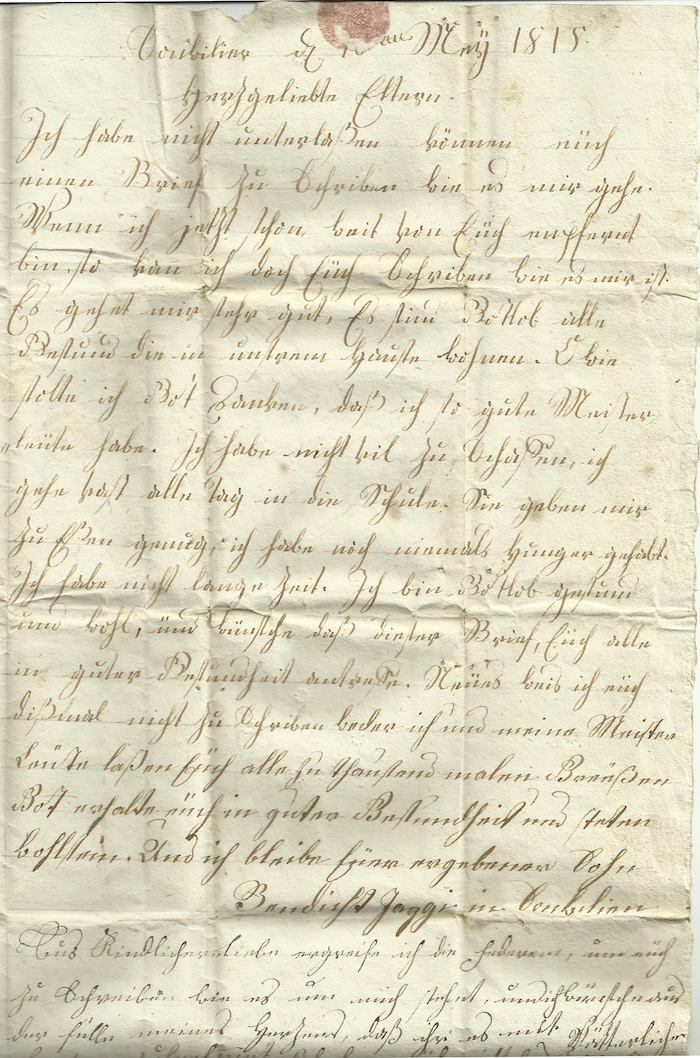 Sonbilier d. 1 ten Meÿ 1818.
Herzgeliebte Eltern.
Ich habe nicht unterlaßen können eüch
einen Brief zu Schriben wie es mir gehe.
Wenn ich jetzt schon weit von Eüch enpfernt
bin, so kan ich doch Eüch Schriben wie es mir ist.
Es gehet mir sehr gut, Es sind Gotlob alle
Gesund die in unsrem Hause wohnen. O wie
solte ich Got Danken, daß ich so gute Meister
„leüte habe. Ich habe nicht vil zu Schaffen, ich
gehe vast alle Tag in die Schule. Sie geben mir
zu Eßen genug, ich habe noch niemals Hunger gehabt.
Ich habe nicht lange Zeit. Ich bin Gotlob gesund
und wohl, und wünsche daß dieser Brief, Eüch alle
in guter Gesundheit antreffe. Neües weis ich eüch
dißmal nicht zu Schriben weder ich und meine Meister
Leüte laßen Eüch alle zu thausend malen Greüßen
Got erhalte eüch in guter Gesundheit und steten
wohlsein. Und ich bleibe Eüer ergebener Sohn
Bendicht Jaggi in Sonbilier
Aus Kindlicher liebe ergreife ich die Federen, um eüch
zu Schreiben wie es um mich stehet, und wünsche aus
der fülle meines Herzens daß ihr es mit Vätterlicher